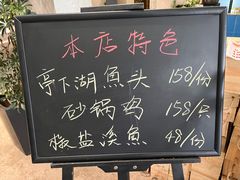 本店特色
亭下湖魚头 158/份
砂锅鸡 158/只
椒盐溪魚 48/份